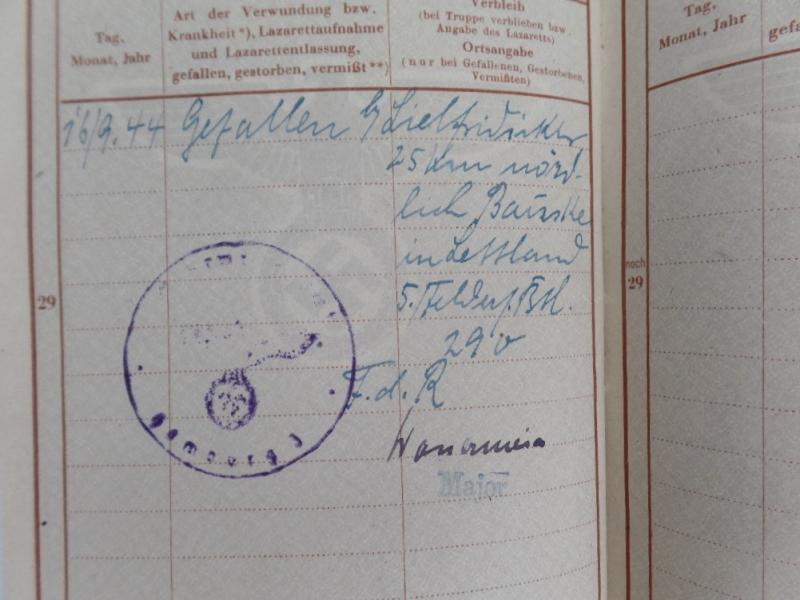 Tag,
Monat, Jahr
Art der Verwundung bzw.
Krankheit *), Lazarettaufnahme
und Lazarettentlassung,
gefallen, gestorben, vermißt **)
Verbleib
(bei Truppe verblieben bzw.
Angabe des Lazaretts)
Ortsangabe
(nur bei Gefallenen, Gestorbenen,
Vermißten)
16/9. 44 Gefallen
25 km nörd-
lich Bauske
in Lettland
290
F. d. R
Major
29
Tag,
Monat, Jahr
gefa
noch
29